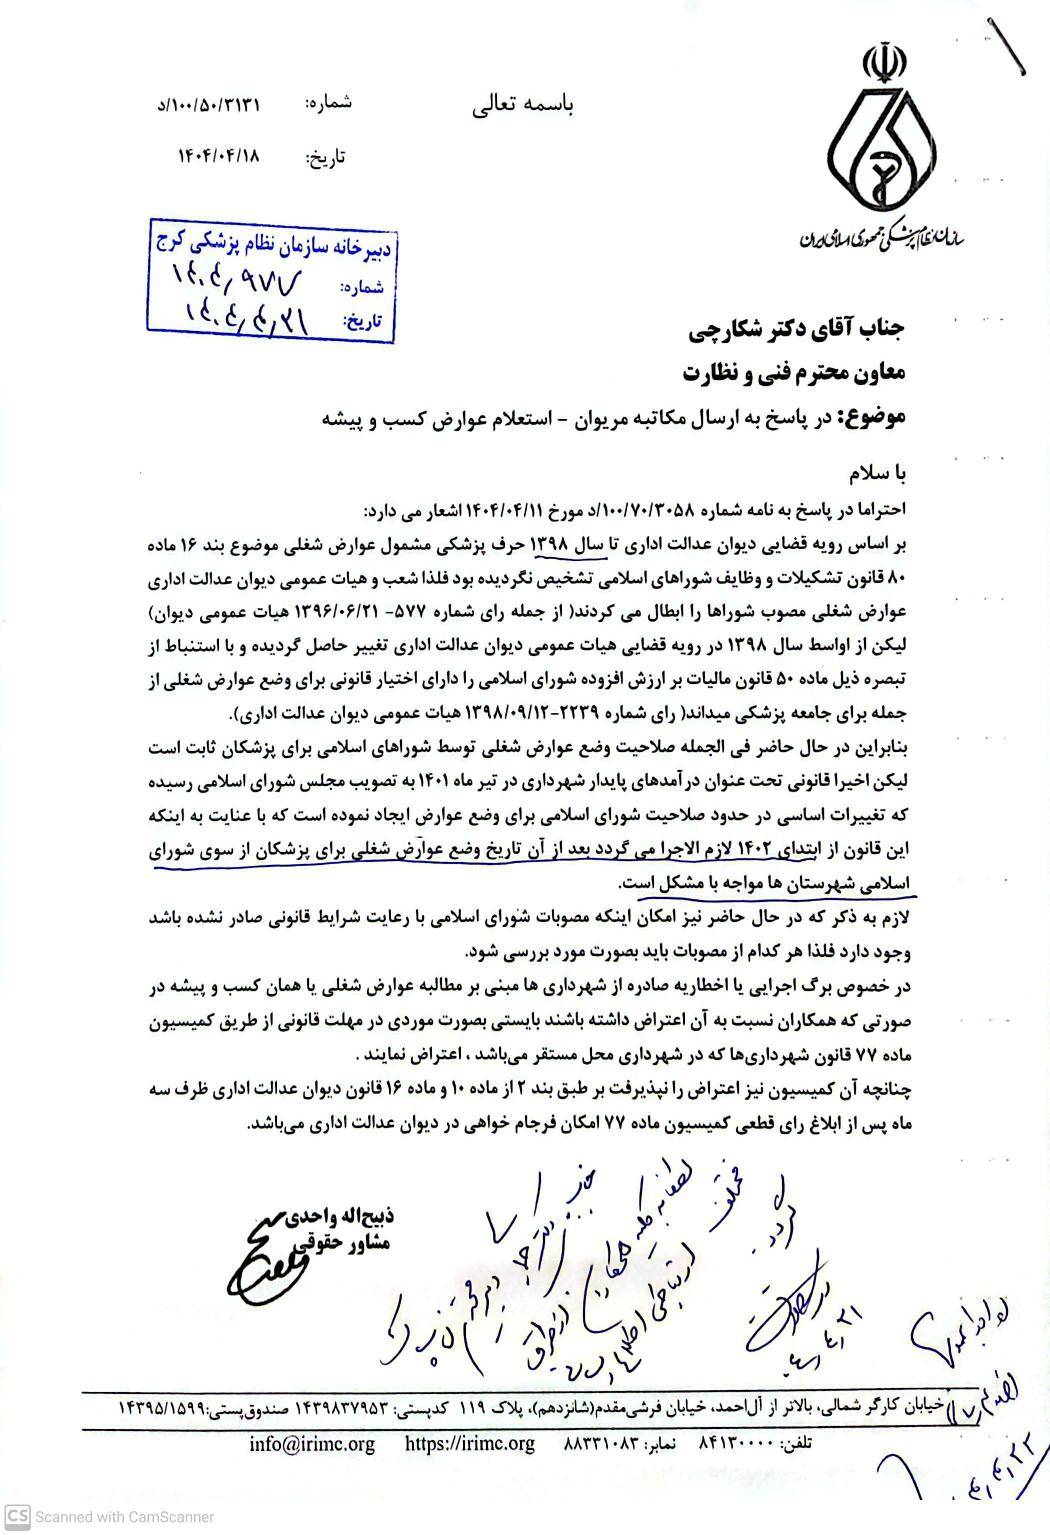 باسمه تعالی
شماره: ۳۱۳۱/۵۰/۱۰۰/د
تاریخ: ۱۴۰۴/۰۴/۱۸
سازمان نظام پزشکی جمهوری اسلامی ایران
دبیرخانه سازمان نظام پزشکی کرج
شماره: ۱۴۰۴/۹۷۷
تاریخ: ۱۴۰۴/۴/۲۱
جناب آقای دکتر شکارچی
معاون محترم فنی و نظارت
موضوع: در پاسخ به ارسال مکاتبه مریوان - استعلام عوارض کسب و پیشه
با سلام
احتراما در پاسخ به نامه شماره ۱۰۰/۷۰/۳۰۵۸/د مورخ ۱۴۰۴/۰۴/۱۱ اشعار می دارد:
بر اساس رویه قضایی دیوان عدالت اداری تا سال ۱۳۹۸ حرف پزشکی مشمول عوارض شغلی موضوع بند ۱۶ ماده
۸۰ قانون تشکیلات و وظایف شوراهای اسلامی تشخیص نگردیده بود فلذا شعب و هیات عمومی دیوان عدالت اداری
عوارض شغلی مصوب شوراها را ابطال می کردند( از جمله رای شماره ۵۷۷- ۱۳۹۶/۰۶/۲۱ هیات عمومی دیوان)
لیکن از اواسط سال ۱۳۹۸ در رویه قضایی هیات عمومی دیوان عدالت اداری تغییر حاصل گردیده و با استنباط از
تبصره ذیل ماده ۵۰ قانون مالیات بر ارزش افزوده شورای اسلامی را دارای اختیار قانونی برای وضع عوارض شغلی از
جمله برای جامعه پزشکی میداند( رای شماره ۲۲۳۹-۱۳۹۸/۰۹/۱۲ هیات عمومی دیوان عدالت اداری).
بنابراین در حال حاضر فی الجمله صلاحیت وضع عوارض شغلی توسط شوراهای اسلامی برای پزشکان ثابت است
لیکن اخیرا قانونی تحت عنوان درآمدهای پایدار شهرداری در تیر ماه ۱۴۰۱ به تصویب مجلس شورای اسلامی رسیده
که تغییرات اساسی در حدود صلاحیت شورای اسلامی برای وضع عوارض ایجاد نموده است که با عنایت به اینکه
این قانون از ابتدای ۱۴۰۲ لازم الاجرا می گردد بعد از آن تاریخ وضع عوارض شغلی برای پزشکان از سوی شورای
اسلامی شهرستان ها مواجه با مشکل است.
لازم به ذکر که در حال حاضر نیز امکان اینکه مصوبات شورای اسلامی با رعایت شرایط قانونی صادر نشده باشد
وجود دارد فلذا هر کدام از مصوبات باید بصورت مورد بررسی شود.
در خصوص برگ اجرایی یا اخطاریه صادره از شهرداری ها مبنی بر مطالبه عوارض شغلی یا همان کسب و پیشه در
صورتی که همکاران نسبت به آن اعتراض داشته باشند بایستی بصورت موردی در مهلت قانونی از طریق کمیسیون
ماده ۷۷ قانون شهرداری‌ها که در شهرداری محل مستقر می‌باشد ، اعتراض نمایند .
چنانچه آن کمیسیون نیز اعتراض را نپذیرفت بر طبق بند ۲ از ماده ۱۰ و ماده ۱۶ قانون دیوان عدالت اداری ظرف سه
ماه پس از ابلاغ رای قطعی کمیسیون ماده ۷۷ امکان فرجام خواهی در دیوان عدالت اداری می‌باشد.
ذبیح‌اله واحدی
مشاور حقوقی
جناب
لطفا به کلیه
مختلف
گردد.
از طریق
ارتباطی اطلاع رسانی
۴/۴/۲۱
خیابان کارگر شمالی، بالاتر از آل‌احمد، خیابان فرشی‌مقدم(شانزدهم)، پلاک ۱۱۹ کدپستی: ۱۴۳۹۸۳۷۹۵۳ صندوق‌پستی: ۱۴۳۹۵/۱۵۹۹
تلفن: ۸۴۱۳۰۰۰۰ نمابر: ۸۸۳۳۱۰۸۳ https://irimc.org info@irimc.org
CS Scanned with CamScanner